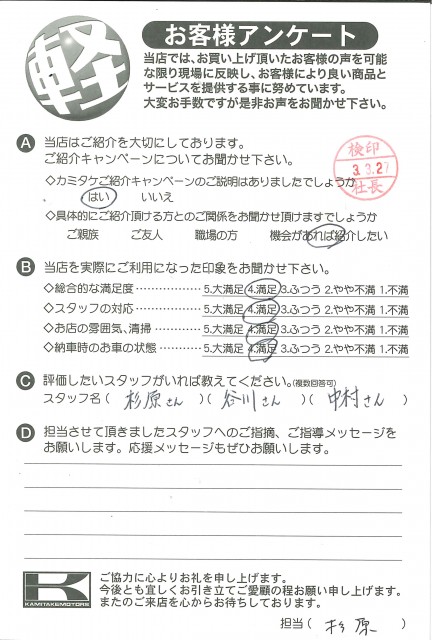 軽
お客様アンケート
当店では、お買い上げ頂いたお客様の声を可能
な限り現場に反映し、お客様により良い商品と
サービスを提供する事に努めています。
大変お手数ですが是非お声をお聞かせ下さい。
A 当店はご紹介を大切にしております。
ご紹介キャンペーンについてお聞かせ下さい。
検印
3.3.27
社長
◇カミタケご紹介キャンペーンのご説明はありましたでしょうか
はい いいえ
◇具体的にご紹介頂ける方とのご関係をお聞かせ頂けますでしょうか
ご親族 ご友人 職場の方 機会があれば紹介したい
B 当店を実際にご利用になった印象をお聞かせ下さい。
◇総合的な満足度……………5.大満足 4.満足 3.ふつう 2.やや不満 1.不満
◇スタッフの対応……………5.大満足 4.満足 3.ふつう 2.やや不満 1.不満
◇お店の雰囲気、清掃………5.大満足 4.満足 3.ふつう 2.やや不満 1.不満
◇納車時のお車の状態………5.大満足 4.満足 3.ふつう 2.やや不満 1.不満
C 評価したいスタッフがいれば教えてください。(複数回答可)
スタッフ名( 杉原さん )( 谷川さん )( 中村さん )
D 担当させて頂きましたスタッフへのご指摘、ご指導メッセージを
お願いします。応援メッセージもぜひお願いします。
K
KAMITAKEMOTORS
ご協力に心よりお礼を申し上げます。
今後とも宜しくお引き立てご愛顧の程お願い申し上げます。
またのご来店を心からお待ちしております。
担当( 杉原 )